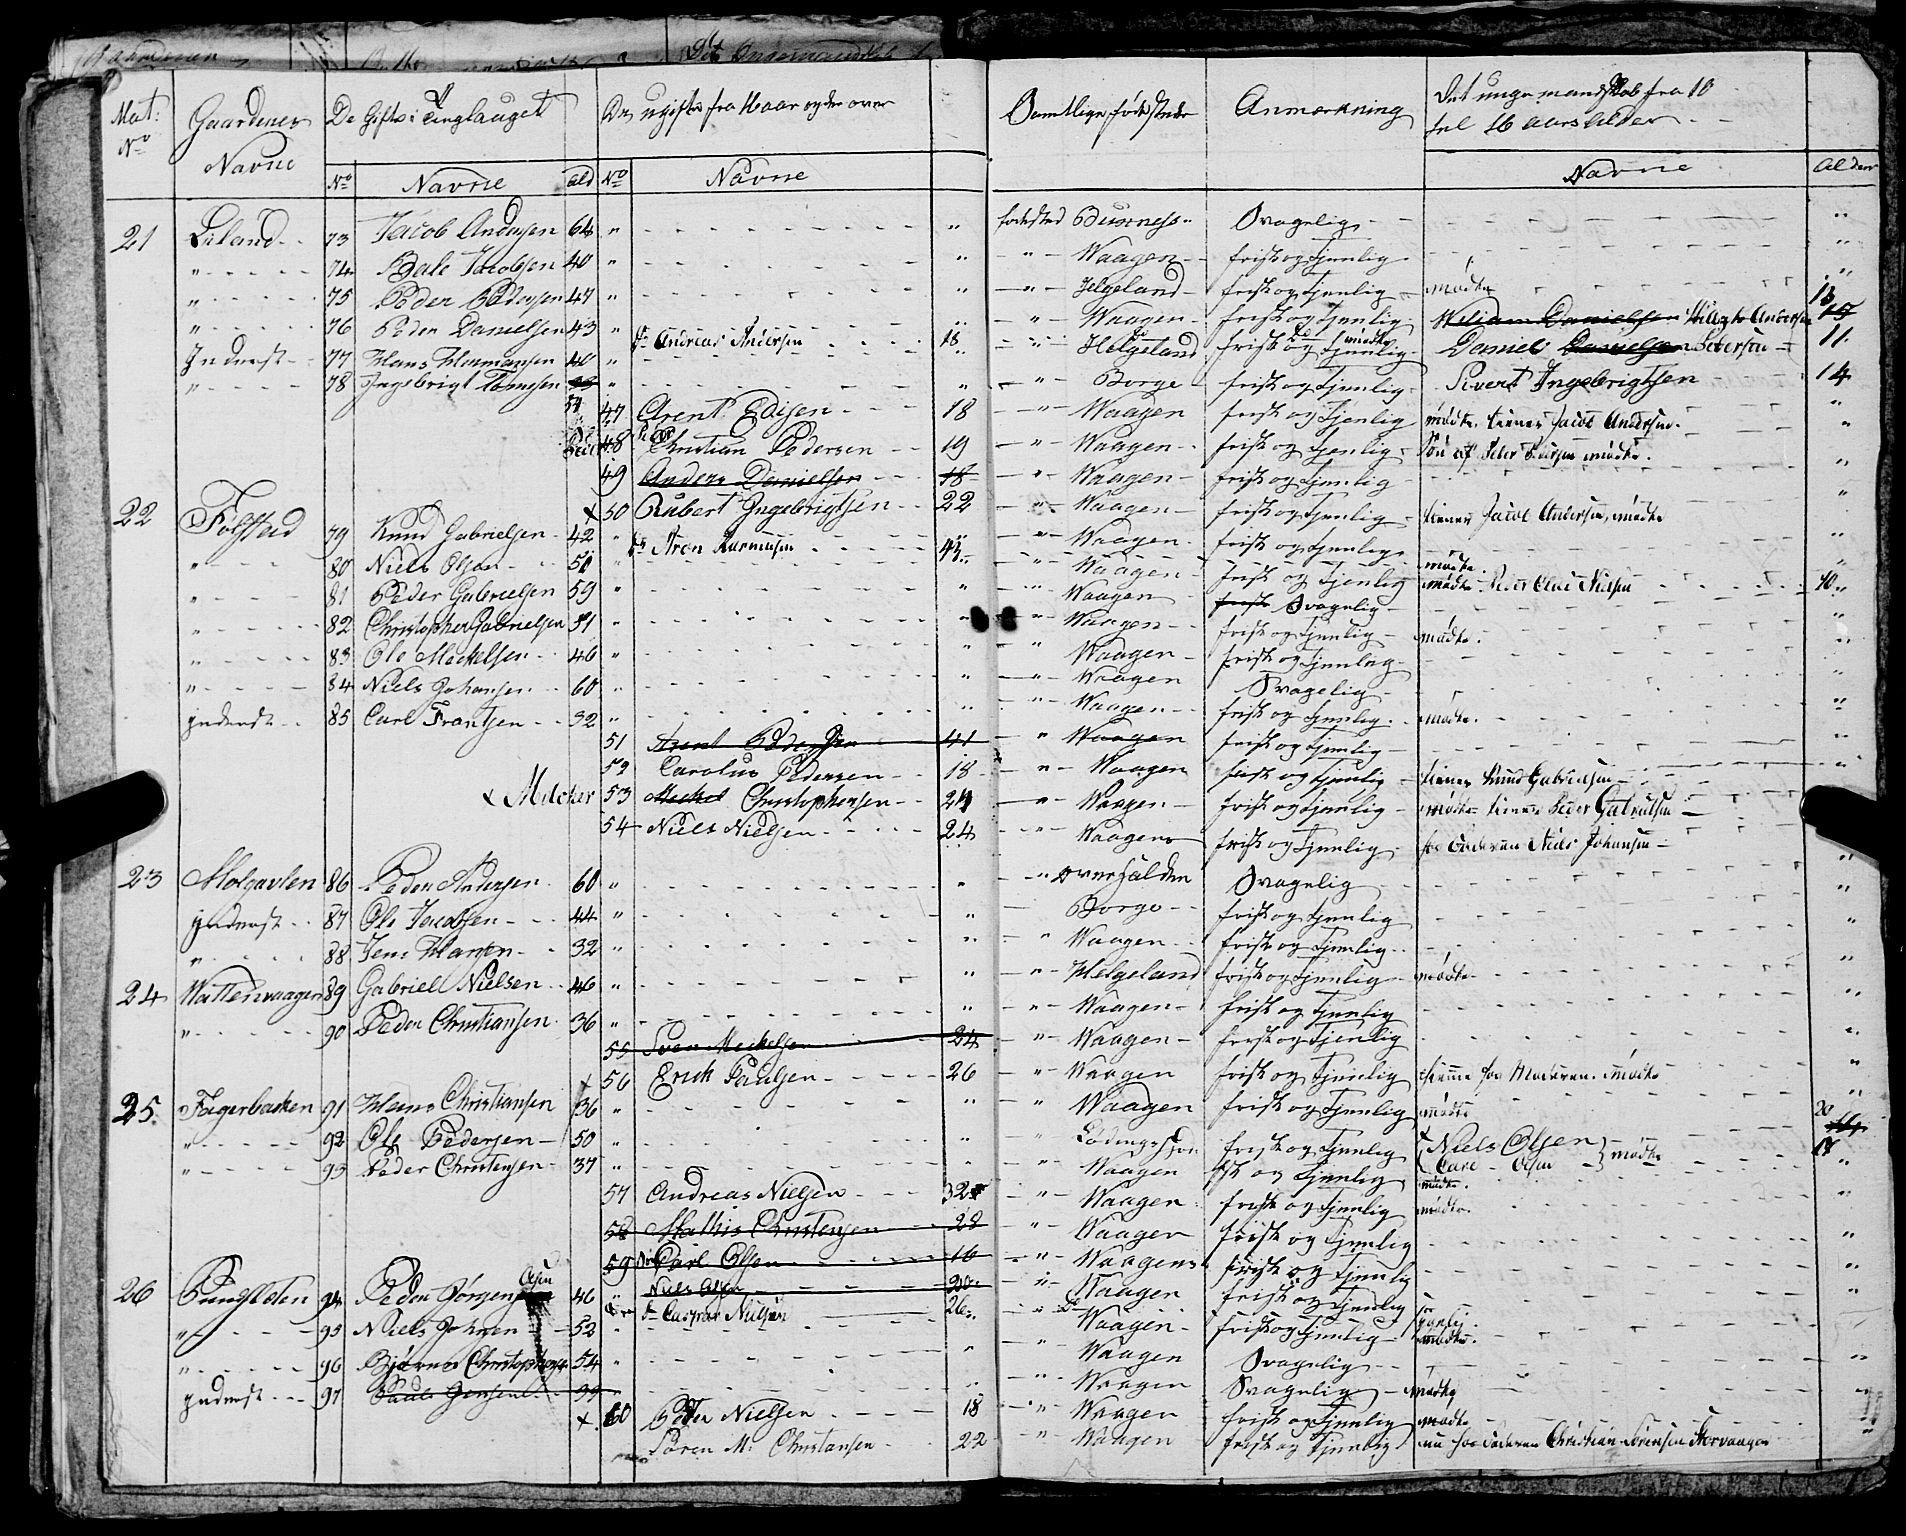 Mat: No | Gaardenes Navne | De Gifte i Tinglauget | De ugifte fra 16 aar og der over | Samtliges fødested | Anmærkning | Det unge mandskab fra 10 til 16 aars Alder
No | Navne | ald | No | Navne | Navne | Alder
21 Liland 73 Jacob Andersen 64 " fødested Buxness Svagelig
" 74 Bale Jacobsen 40 " " Waagen frisk og Tjenlig
" 75 Peder Pedersen 47 " " Helgeland frisk og Tjenlig mødte
" 76 Peder Danielsen 43 " " Waagen frisk og Tjenlig Wiliam Danielsen 13
Andreas Andersen 18 mødte
Inderst 77 Hans Hermansen 40 " Helgeland frisk og Tjenlig Daniel Danielsen Pedersen 11
" 78 Ingebrigt Tomesen 51 " " Borge frisk og Tjenlig Sivert Ingebrigtsen 14
47 Arent Edisen 18 " Waagen frisk og Tjenlig mødte tiener Jacob Andersen
48 Peder Christian Pedersen 19 " Waagen frisk og Tjenlig Søn af Peder Pedersen mødte
49 Anders Danielsen 18 " Waagen frisk og Tjenlig
x 50 Rubert Ingebrigtsen 22 " Waagen frisk og Tjenlig tiener Jacob Andersen, mødte
22 Følstad 79 Knud Gabrielsen 42 " " Waagen frisk og Tjenlig
Aron Rasmusen 43
" 80 Niels Olsen 51 " " Waagen frisk og Tjenlig mødte
" 81 Peder Gabrielsen 59 " " Waagen frisk Svagelig mødte Peder Olai Nielsen 10
" 82 Christopher Gabrielsen 51 " " Waagen frisk og Tjenlig mødte
" 83 Ole Meckelsen 46 " " Waagen frisk og Tjenlig
" 84 Niels Johansen 60 " " Waagen Svagelig
inderst 85 Carl Frantsen 32 " " Waagen frisk og Tjenlig mødte
51 Arent Pedersen 41 " Waagen frisk og Tjenlig
52 Carolus Pedersen 18 " Waagen frisk og Tjenlig tiener Knud Gabrielsen
x Melcher 53 Meckel Christophersen 24 " Waagen frisk og Tjenlig mødte tiener Peder Gabrielsen
54 Niels Nielsen 24 " Waagen frisk og Tjenlig hos Faderen Niels Johansen
23 Molgavlen 86 Peder Andersen 60 " " Overhalden Svagelig
inderst 87 Ole Jacobsen 44 " Borge frisk og Tjenlig
" 88 Jens Hansen 32 " " Waagen frisk og Tjenlig
24 Watterwaagen 89 Gabriel Nielsen 46 " " Helgeland frisk og Tjenlig mødte
" 90 Peder Christiansen 36 " " Waagen frisk og Tjenlig
55 Sven Meckelsen 24 " Waagen frisk og Tjenlig
x 56 Erick Paulsen 26 " Waagen frisk og Tjenlig hiemme hos Moderen. mødte
25 Fagerbacken 91 Hans Christiansen 36 " " Waagen frisk og Tjenlig mødte
" 92 Ole Pedersen 50 " " Lødingsfiord frisk og Tjenlig Niels Olsen 20
Carl Olsen mødte 17
" 93 Peder Christensen 37 " " Waagen frisk og Tjenlig mødte
57 Andreas Nielsen 32 " Waagen frisk og Tjenlig mødte
58 Mathis Christensen 28 " Waagen frisk og Tjenlig
59 Carl Olsen 16 " Waagen frisk og Tjenlig
26 94 Peder Jørgensen Olsen 46 " Niels Olsen 20 " Waagen frisk og Tjenlig
Caspar Nielsen 26
" 95 Niels Johnsen 52 " Waagen frisk og Tjenlig mødte
" 96 Bjørnes Christophers. 54 " " Waagen Svagelig
inderst 97 Paul Jensen 39 " Waagen Svagelig mødte
x 60 Peder Nielsen 18 " Waagen frisk og Tjenlig mødte
Søren M: Christansen 22 " Waagen frisk og Tjenlig nu hos Faderen Christian Sørensen Storvaagen